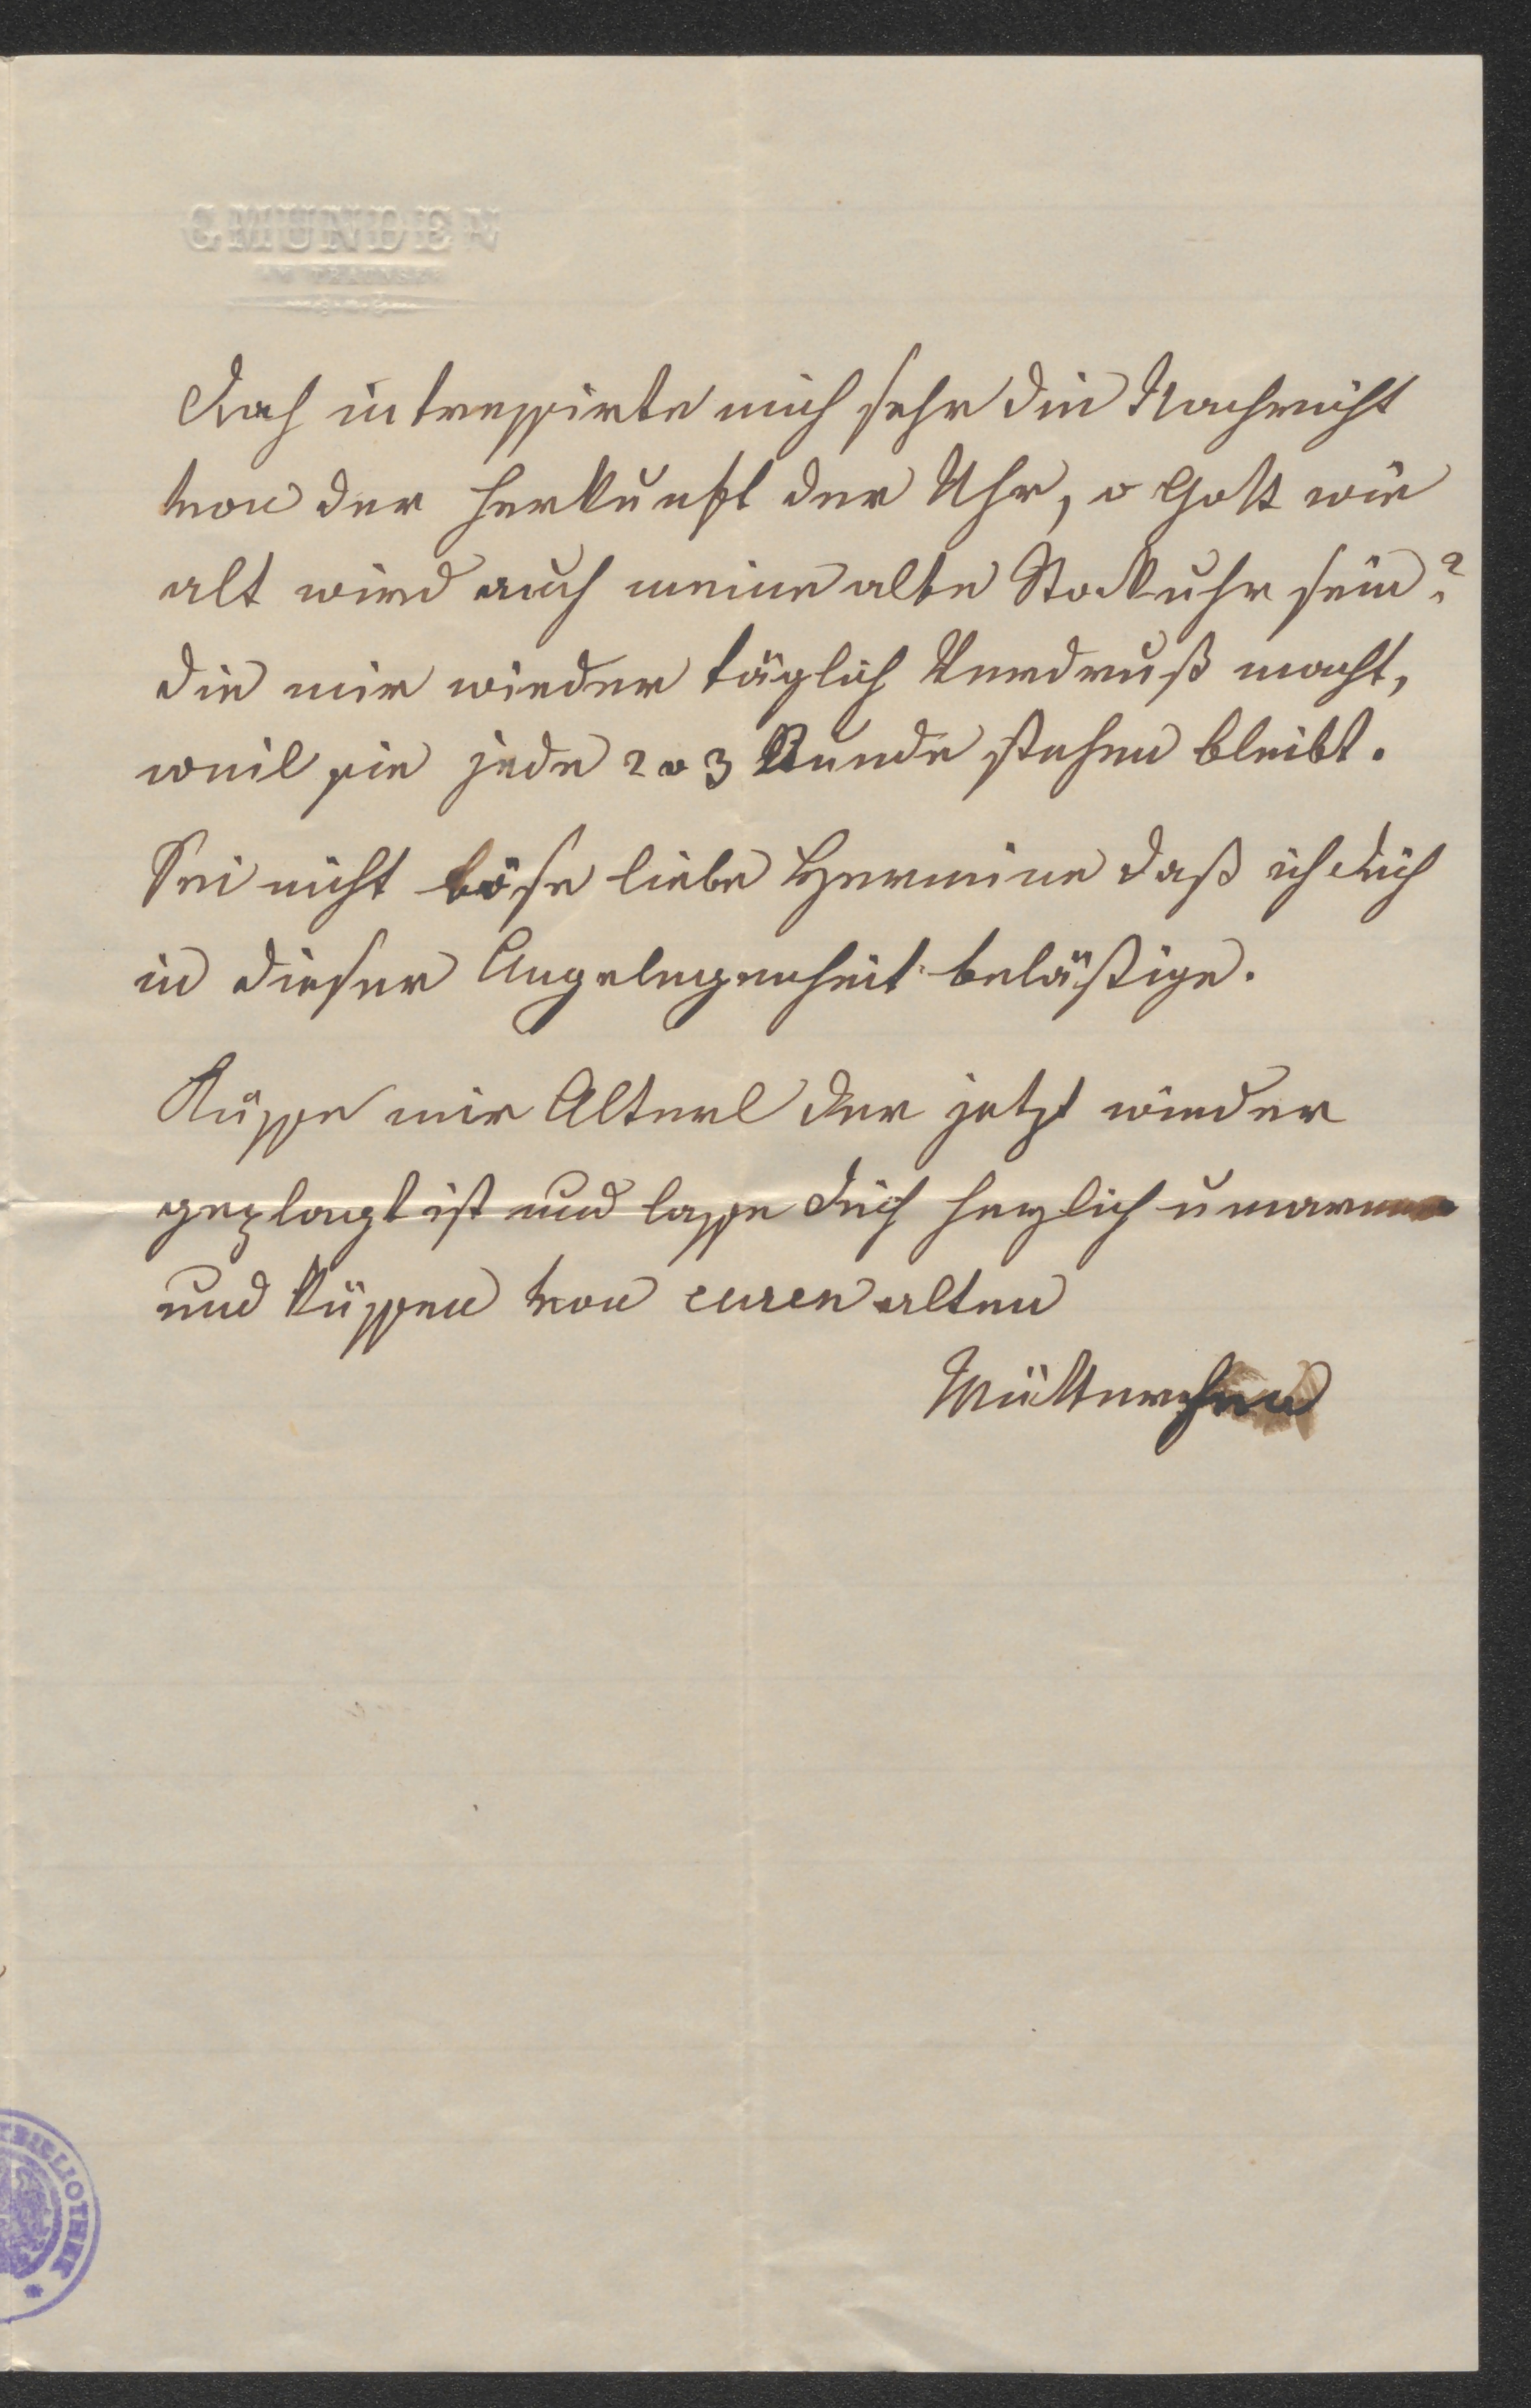 GMUNDEN
AM TRAUNSEE
Auch intressirte mich sehr die Nachricht
von der Herkunft der Uhr, o Gott wie
alt wird auch meine alte Stockuhr sein?
die mir wieder täglich Verdruß macht,
weil sie jede 2 o 3 Stunde stehen bleibt.
Sei nicht böse liebe Hermine daß ich dich
in dieser Angelegenheit belästige.
Küsse mir Alterl der jetzt wieder
geplagt ist und lasse dich herzlich umarmen
und küssen von euren alten
Mütterchen
BIBLIOTHEK